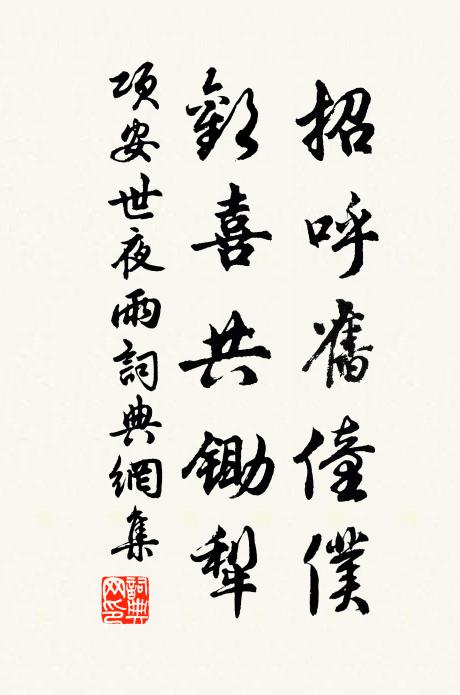 招呼舊僮僕
歡喜共鋤犁
項安世夜雨詞典網集
詞典網印